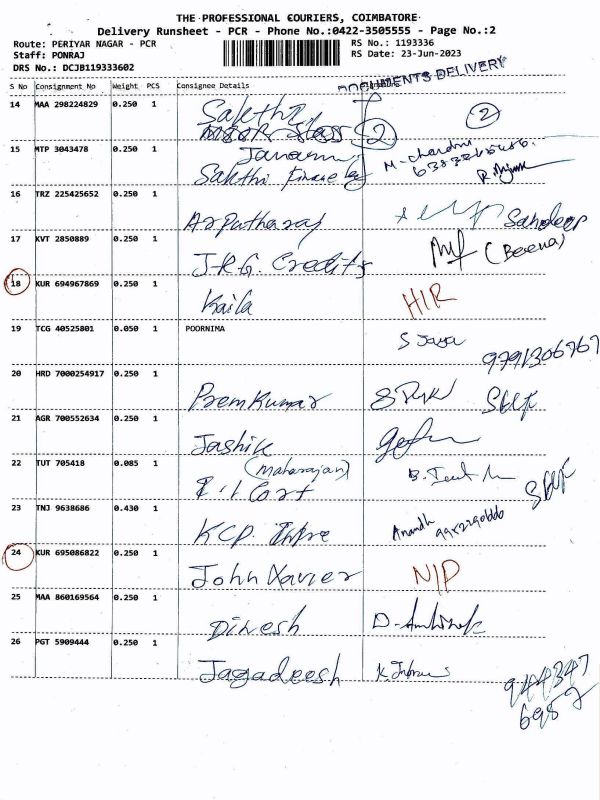 THE PROFESSIONAL COURIERS, COIMBATORE
Delivery Runsheet - PCR - Phone No.:0422-3505555 - Page No.:2
Route: PERIYAR NAGAR - PCR RS No.: 1193336
Staff: PONRAJ RS Date: 23-Jun-2023
DRS No.: DCJB119333602
DOCUMENTS DELIVERY
S No Consignment No Weight PCS Consignee Details
14 MAA 298224829 0.250 1 Sakthi 2
2
15 MTP 3043478 0.250 1 M-chandru
Sakthi Finance
16 TRZ 225425652 0.250 1
Arputharaj Sandeep
17 KVT 2850889 0.250 1 (Beena)
J.R.G. Credits
18 KUR 694967869 0.250 1 Kaila HIR
19 TCG 40525801 0.050 1 POORNIMA S Jaya
9791306767
20 HRD 7000254917 0.250 1
Prem Kumar Self
21 AGR 700552634 0.250 1
Jashik
22 TUT 705418 0.085 1 (Maharajan)
Self
23 TNJ 9638686 0.430 1
KCP Anandh
24 KUR 695086822 0.250 1
John Xavier NIP
25 MAA 860169564 0.250 1
Dinesh
26 PGT 5909444 0.250 1
Jagadeesh
944347
6957